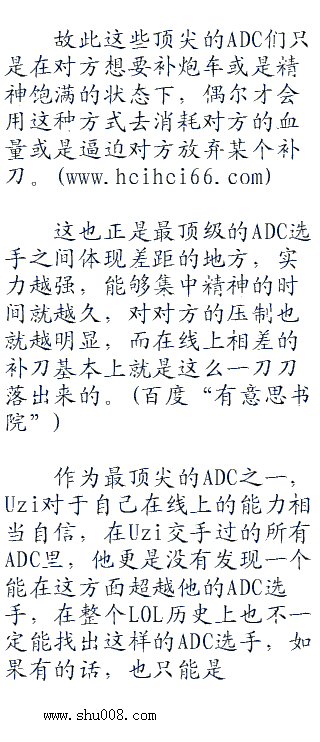 故此这些顶尖的ADC们只
是在对方想要补炮车或是精
神饱满的状态下，偶尔才会
用这种方式去消耗对方的血
量或是逼迫对方放弃某个补
刀。(www.hcihci66.com)
这也正是最顶级的ADC选
手之间体现差距的地方，实
力越强，能够集中精神的时
间就越久，对对方的压制也
就越明显，而在线上相差的
补刀基本上就是这么一刀刀
落出来的。(百度“有意思书
院”)
作为最顶尖的ADC之一，
Uzi对于自己在线上的能力相
当自信，在Uzi交手过的所有
ADC里，他更是没有发现一个
能在这方面超越他的ADC选
手，在整个LOL历史上也不一
定能找出这样的ADC选手，如
果有的话，也只能是
www.shu008.com